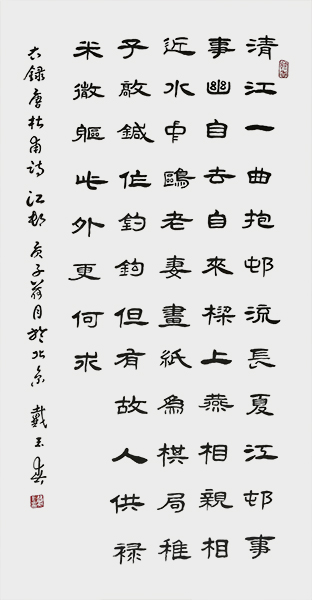 清江一曲抱邨流長夏江邨事
事幽自去自來樑上燕相親相
近水中鷗老妻畫紙為棋局稚
子敲鍼作釣鉤但有故人供祿
米微軀此外更何求
右錄唐杜甫詩江邨 庚子荷月於北京 戴玉